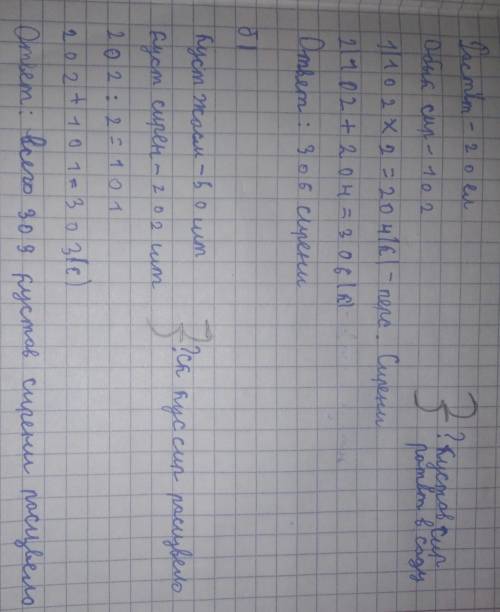 Растёт - 20 ел
Обык сир - 102
? Кустов сир
растёт в саду
1) 102 × 2 = 204(к) - перс. Сирени
2) 102 + 204 = 306(к)
Ответ: 306 сирени
б)
Куст жасм - 50 шт
Куст сирен - 202 шт
?ск кус сир расцвело
202 : 2 = 101
202 + 101 = 303(с)
Ответ: всего 303 кустов сирени расцвело